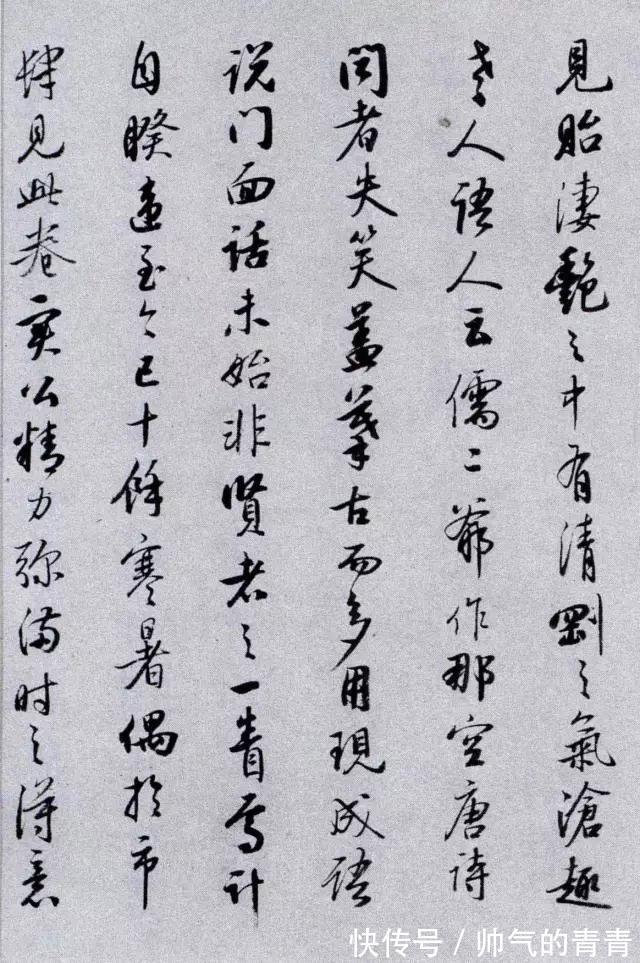 見貽淒艷之中有清剛之氣滄趣
老人語人云儒二爺作那空唐詩
聞者失笑蓋摹古而多用現成語
说门面話未始非賢者之一眚焉计
自睽違至今已十餘寒暑偶於市
肆見此卷実公精力弥满时之得意
快传号/帅气的青青